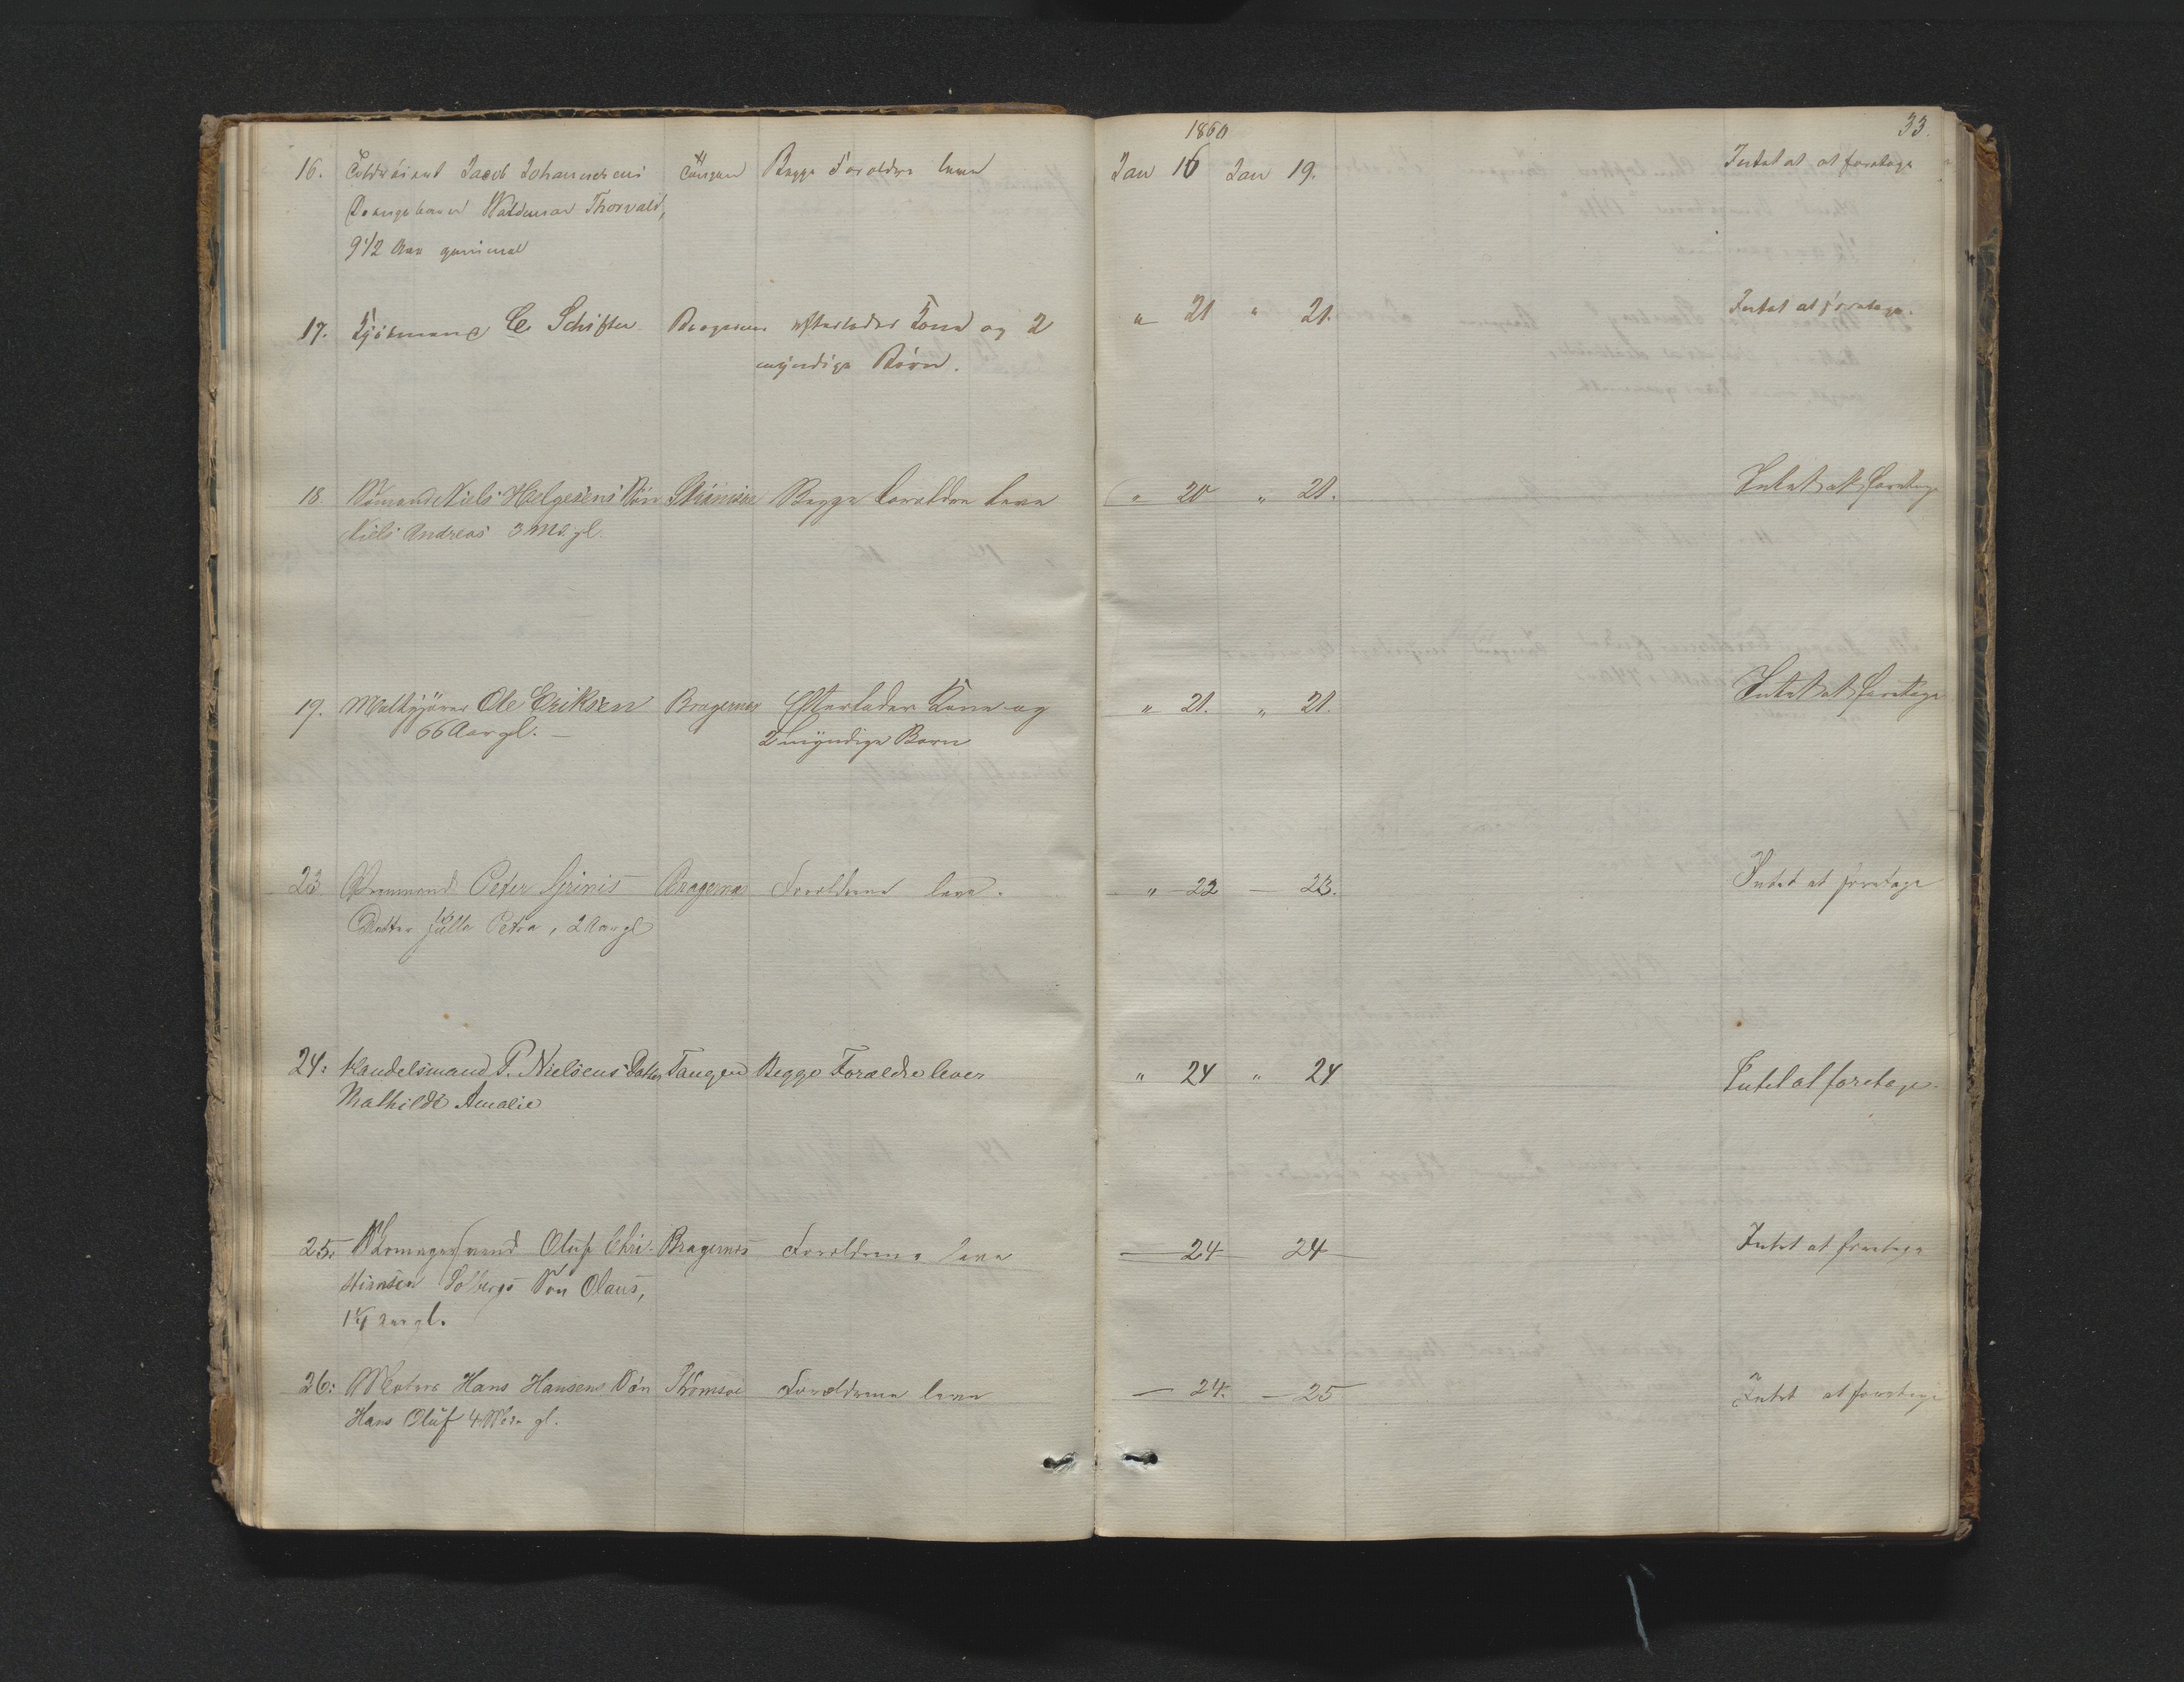 1860
33.
16. Toldbetient Jacob Johannesens Tangen Begge Forældre leve Jan 16 Jan 19. Intet at foretage
Drengebarn Waldemar Thorvald,
9 1/2 Aar gammel
17. C. Schifter Bragernes efterlader Kone og 2 " 21 " 21. Intet at foretage.
myndige Børn.
18 Sømand Niels Helgesens Søn Strömsöe Begge Forældre leve " 20 " 21. Intet at foretage
Niels Andreas 3 Md. gl.
19. Ole Eriksen Bragernes Efterlader Kone og " 21. " 21. Intet at foretage
66 Aar gl. —
2 myndige Børn
23 Peter Bragernes Forældrene leve. " 22 — 23. Intet at foretage
Datter Julle Petra, 2 Aar gl
24: Handelsmand P. Nielsens Datter Tangen Begge Forældre lever " 24 " 24 Intet at foretage.
Mathilde Amalie
25. Oluf Chri- Bragernes Forældrene leve — 24 24 Intet at foretage
stiansen Solbergs Søn Olaus,
1 1/4 Aar gl.
26: Hans Hansens Søn Strömsöe Forældrene leve — 24. — 25 Intet at foretage
Hans Oluf 4 gl.